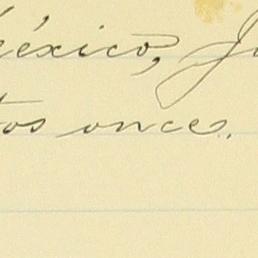 México, Ju
tos once.